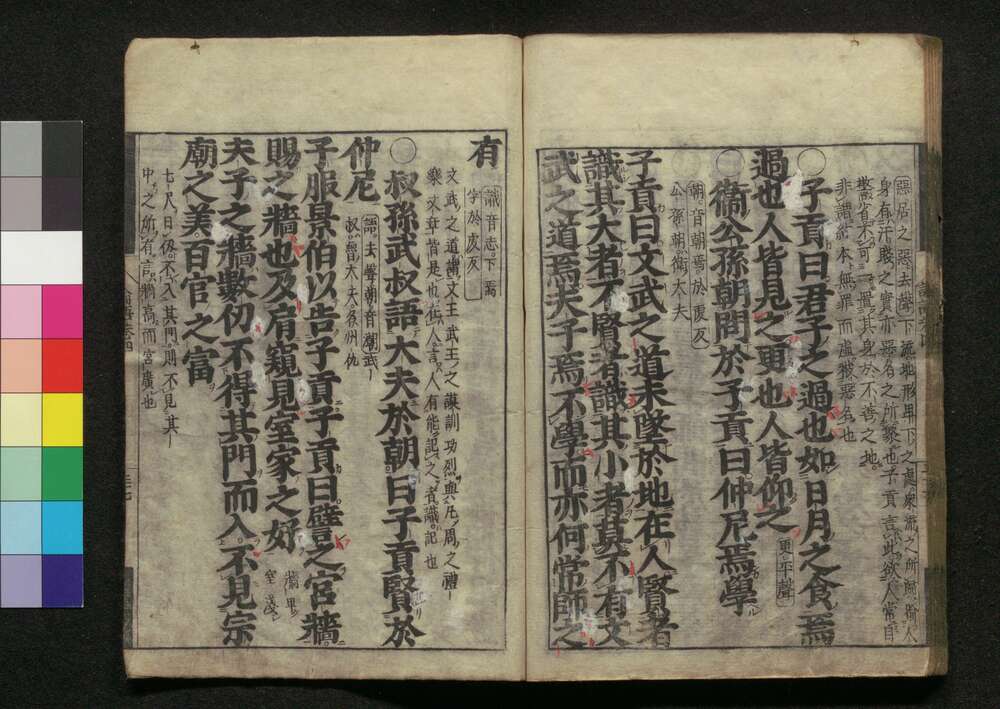 惡居之惡去聲下流地形卑下之處衆流之所歸喻人
身有汙賤之實亦惡名之所聚也子貢言此欲人常自
警省不可一置其身於不善之地
非謂紂本無罪而虛被惡名也
〇子貢曰君子之過也如日月之食焉
過也人皆見之更也人皆仰之 更平聲
〇衞公孫朝問於子貢曰仲尼焉學
朝音朝焉於虔反
公孫朝衞大夫
子貢曰文武之道未墜於地在人賢者
識其大者不賢者識其小者莫不有文
武之道焉夫子焉不學而亦何常師之
有
識音志下焉
字於虔反
文武之道謂文王武王之謨訓功烈與凡周之禮
樂文章皆是也在人言人有能記之者識記也
〇叔孫武叔語大夫於朝曰子貢賢於
仲尼
語去聲朝音潮武
叔魯大夫名州仇
子服景伯以告子貢子貢曰譬之宮牆
賜之牆也及肩窺見室家之好
牆卑
室淺
夫子之牆數仞不得其門而入不見宗
廟之美百官之富
七尺曰仞不入其門則不見其
中之所有言牆高而宮廣也